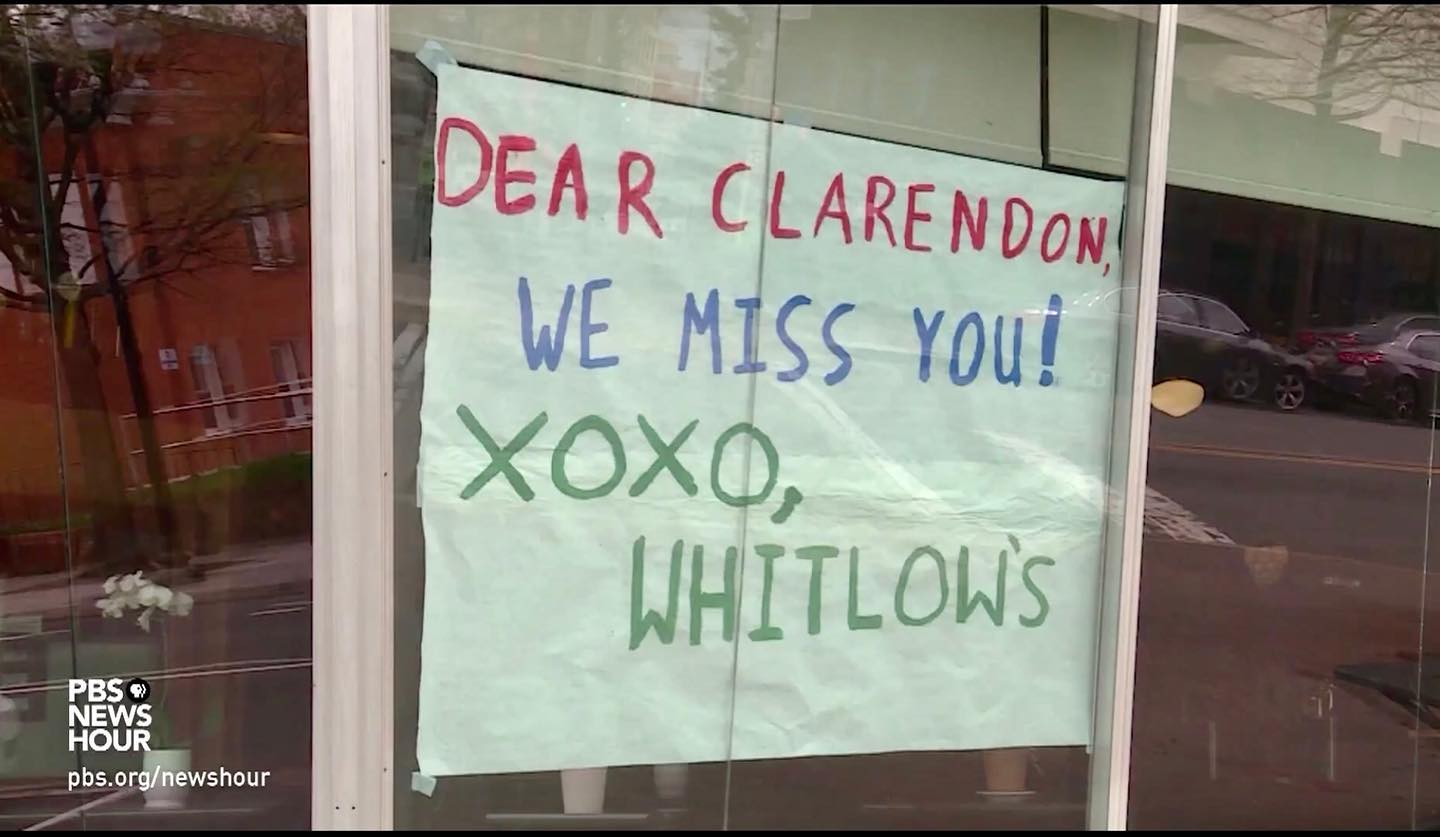 DEAR CLARENDON,
WE MISS YOU!
XOXO,
WHITLOW'S
PBS
NEWS
HOUR
pbs.org/newshour